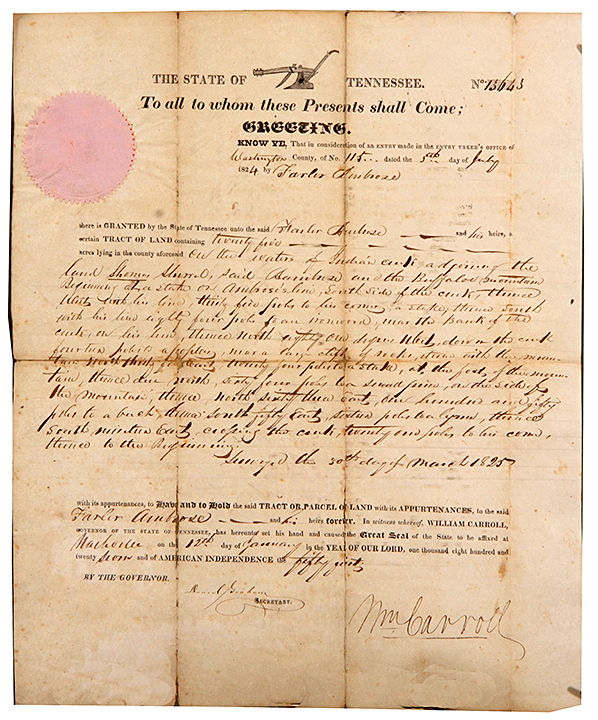 THE STATE OF TENNESSEE. No. 13643
To all to whom these Presents shall Come;
GREETING.
KNOW YE, That in consideration of an ENTRY MADE IN THE ENTRY TAKER'S OFFICE OF
Washington County, of No. 115 dated the 5th day of July
1824 by Farler Ambrose
there is GRANTED by the State of Tennessee unto the said Farler Ambrose and his heirs, a
certain TRACT OF LAND containing twenty five
acres lying in the county aforesaid On the waters of Indian creek adjoining the
land Thomas said Ambrose and the Buffalow mountain
Beginning at a stake on Ambrose's line, South side of the creek thence
West with his line, thirty five poles to his corner, a stake, thence South
with his line eighty four poles to an ironwood, near the Bank of the
creek, on his line, thence North eighty One degrees West, down the creek
fourteen poles to a poplar, near a large clift of rocks, thence with the moun
tain North East twenty poles to a stake, at the foot of the moun
tain, thence due north, sixty four poles to a pine, on the side of
the Mountain, thence north sixty three east, One hundred and fifty
poles to a buck, thence South fifty East, sixteen poles to a Lynn, thence
South nineteen East, crossing the creek, twenty one poles to his corner,
thence to the Beginning
Surveyed the 30th day of March 1825
with its appurtenances, to Have and to Hold the said TRACT OR PARCEL OF LAND with its APPURTENANCES, to the said
Farler Ambrose and his heirs forever. In witness whereof, WILLIAM CARROLL,
GOVERNOR OF THE STATE OF TENNESSEE, has hereunto set his hand and caused the Great Seal of the State to be affixed at
Nashville on the 12th day of January in the YEAR OF OUR LORD, one thousand eight hundred and
twenty seven and of AMERICAN INDEPENDENCE the fifty first
BY THE GOVERNOR.
Daniel Graham
SECRETARY.
Wm. Carroll